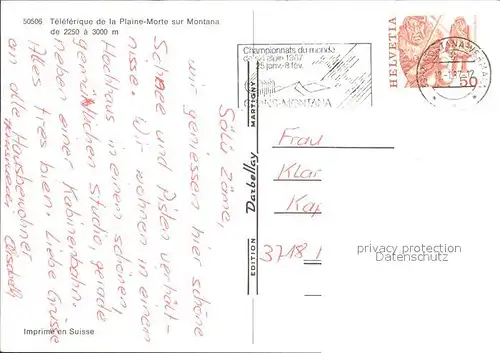 50506 Téléférique de la Plaine-Morte sur Montana
de 2250 à 3000 m
Championnats du monde
de ski alpin 1987
25 janv.-8 fév.
CRANS-MONTANA
HELVETIA
50
Salü zäme,
wir geniessen hier schöne
Schnee und Pisten verhält-
nisse. Wir wohnen in einem
Hochhaus in einem schönen,
gemütlichen Studio, gerade
neben einer Kabinenbahn.
Alles tres bien. Liebe Grüsse
an alle Hausbewohner
EDITION Darbellay MARTIGNY
Frau
Klar
Ka
3718
privacy protection
Datenschutz
Imprimé en Suisse